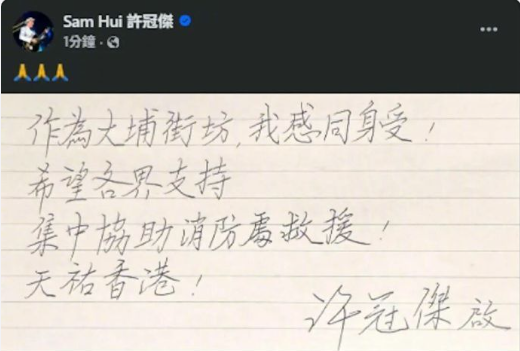 Sam Hui 許冠傑
1分鐘 ·
作為大埔街坊,我感同身受!
希望各界支持
集中協助消防處救援!
天祐香港!
许冠傑 啟